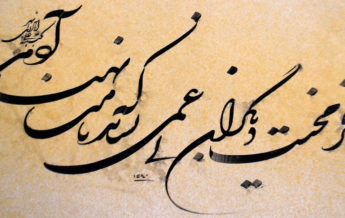 کز محنت دیگران بی غمی
نشاید که نامت نهند آدمی